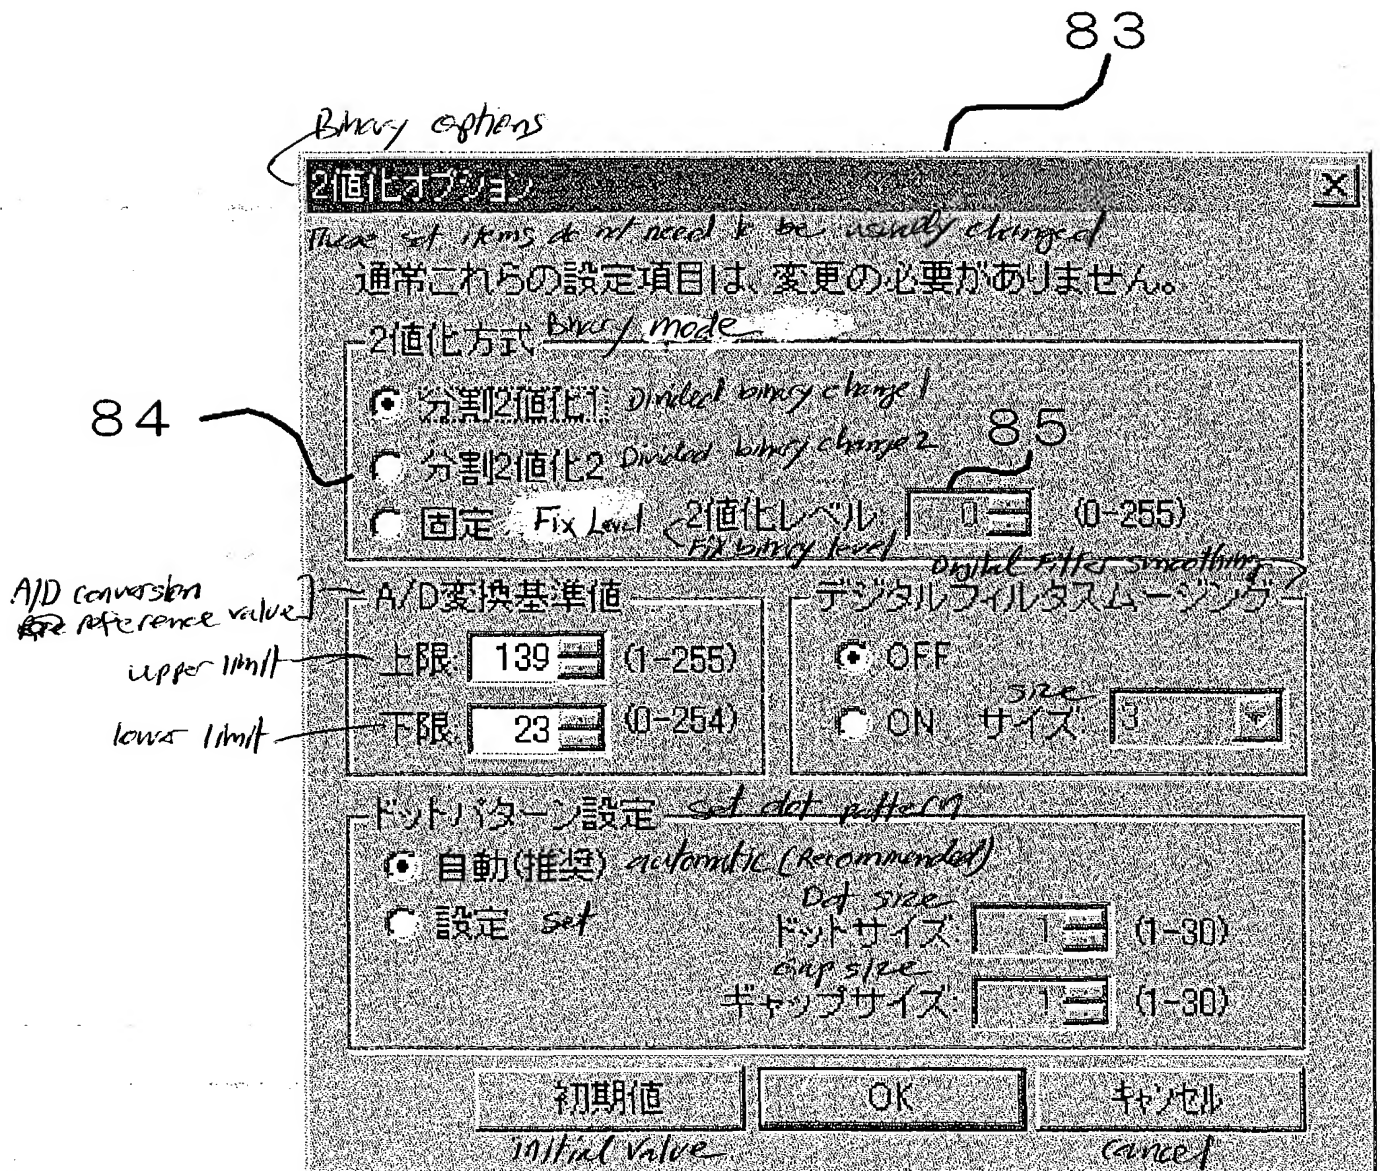 83
Binary options
2値化オプション
These set items do not need to be usually changed
通常これらの設定項目は、変更の必要がありません。
2値化方式 Binary mode
84
分割2値化1 Divided binary change 1
85
分割2値化2 Divided binary change 2
固定 Fix Level 2値化レベル: 0 (0-255)
Fix binary level
Digital Filter smoothing
A/D conversion
reference value
A/D変換基準値
デジタルフィルタスムージング
upper limit
上限: 139 (1-255)
OFF
size
lower limit
下限: 23 (0-254)
ON サイズ: 3
ドットパターン設定 set dot pattern
自動(推奨) automatic (Recommended)
Dot size
設定 set ドットサイズ: 1 (1-30)
Gap size
ギャップサイズ: 1 (1-30)
初期値 OK キャンセル
initial value cancel